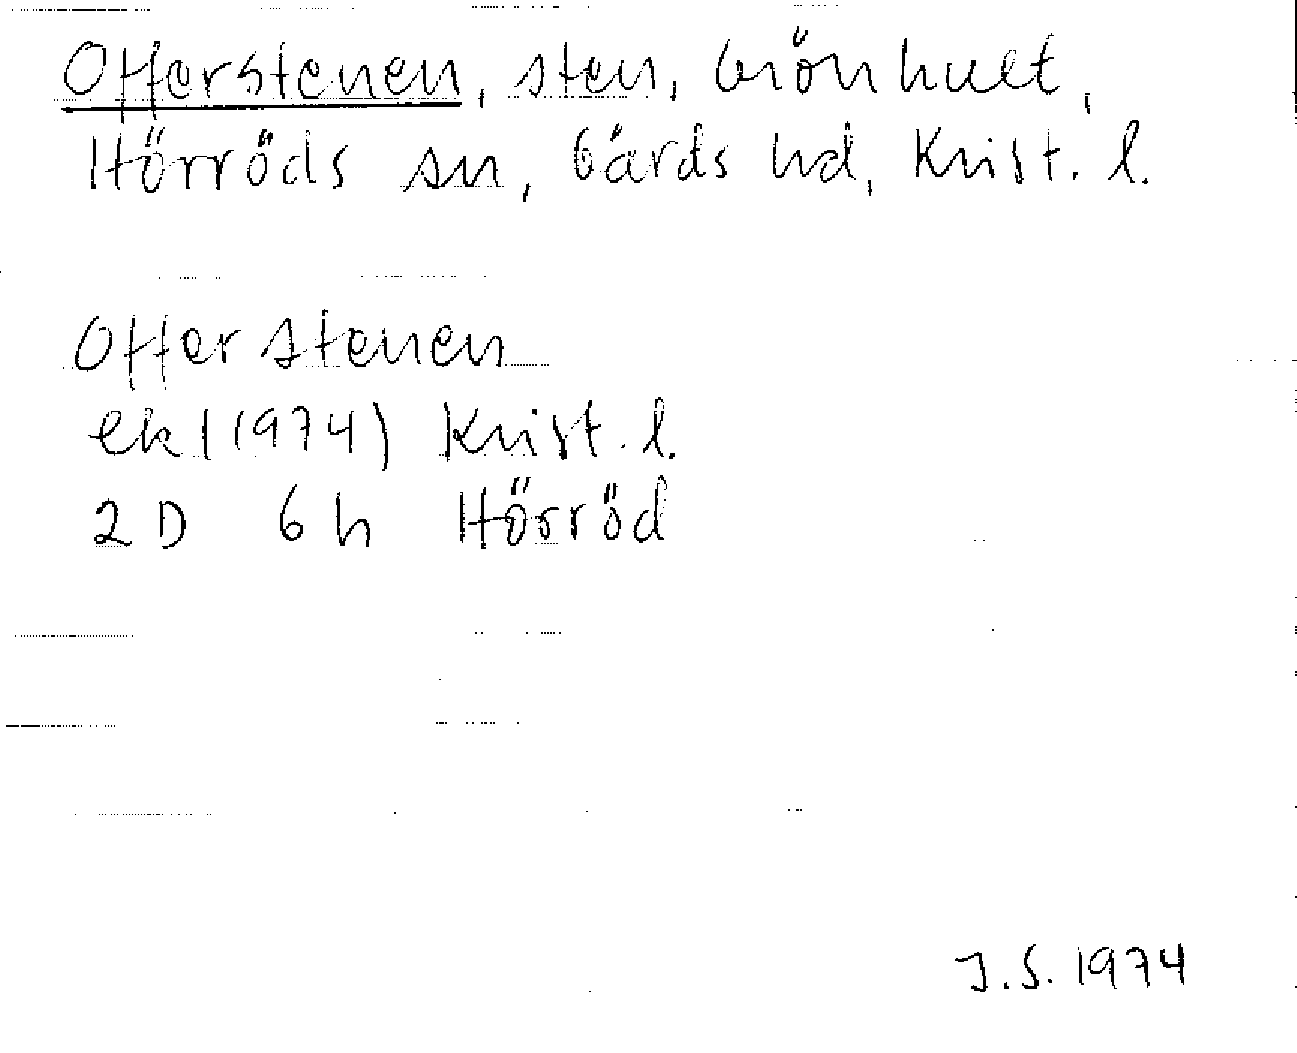 Offerstenen, sten, Grönhult,
Hörröds sn, Gärds hd, Krist. l.
Offerstenen
ek (1974) Krist. l.
2D 6h Hörröd
J.S. 1974